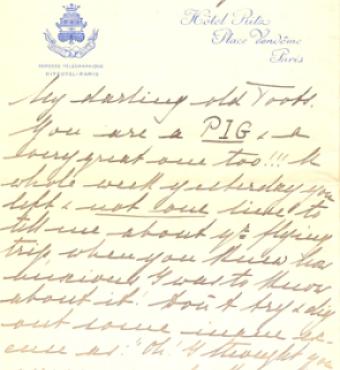 Hôtel Ritz
Place Vendôme
Paris
ADRESSE TÉLÉGRAPHIQUE
RITZOTEL-PARIS
My darling old Toots.
You are a PIG & a
very great one too!!! A
whole week yesterday you
left & not one line to
tell me about yr flying
trip, when you knew how
anxious I was to know
about it! Don't try & dig
out some inane ex-
cuse as: "Oh! I thought you